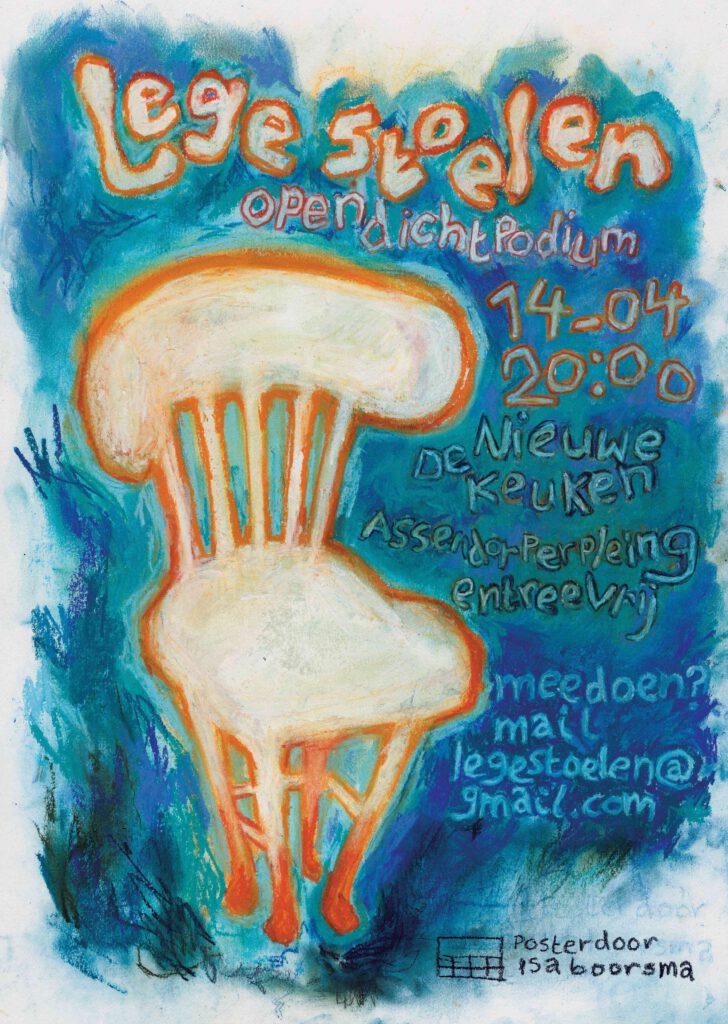 Lege stoelen
opendichtpodium
14-04
20:00
De Nieuwe
Keuken
Assendorperplein 9
entree vrij
meedoen?
mail
legestoelen@
gmail.com
Poster door
Isa boorsma